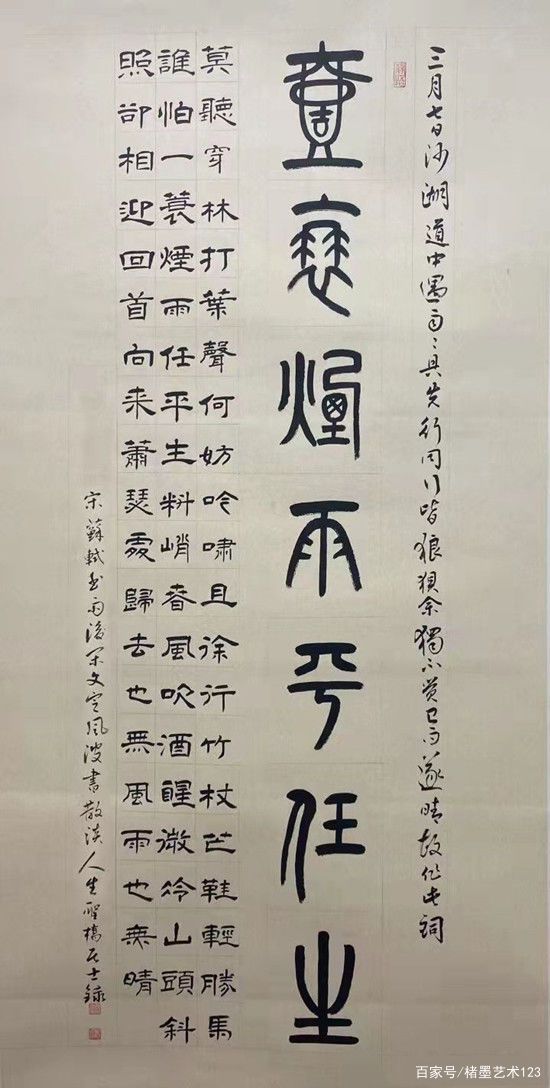 三月七日沙湖道中遇雨〻具先行同行皆狼狽余獨不覺已而遂晴故作此詞
壹蓑煙雨平任生
莫聽穿林打葉聲何妨吟嘯且徐行竹杖芒鞋輕勝馬
誰怕一蓑煙雨任平生料峭春風吹酒醒微冷山頭斜
照卻相迎回首向來蕭瑟處歸去也無風雨也無晴
宋蘇軾雨後文定風波書散淡人生橋居士錄
百家号/楮墨艺术123